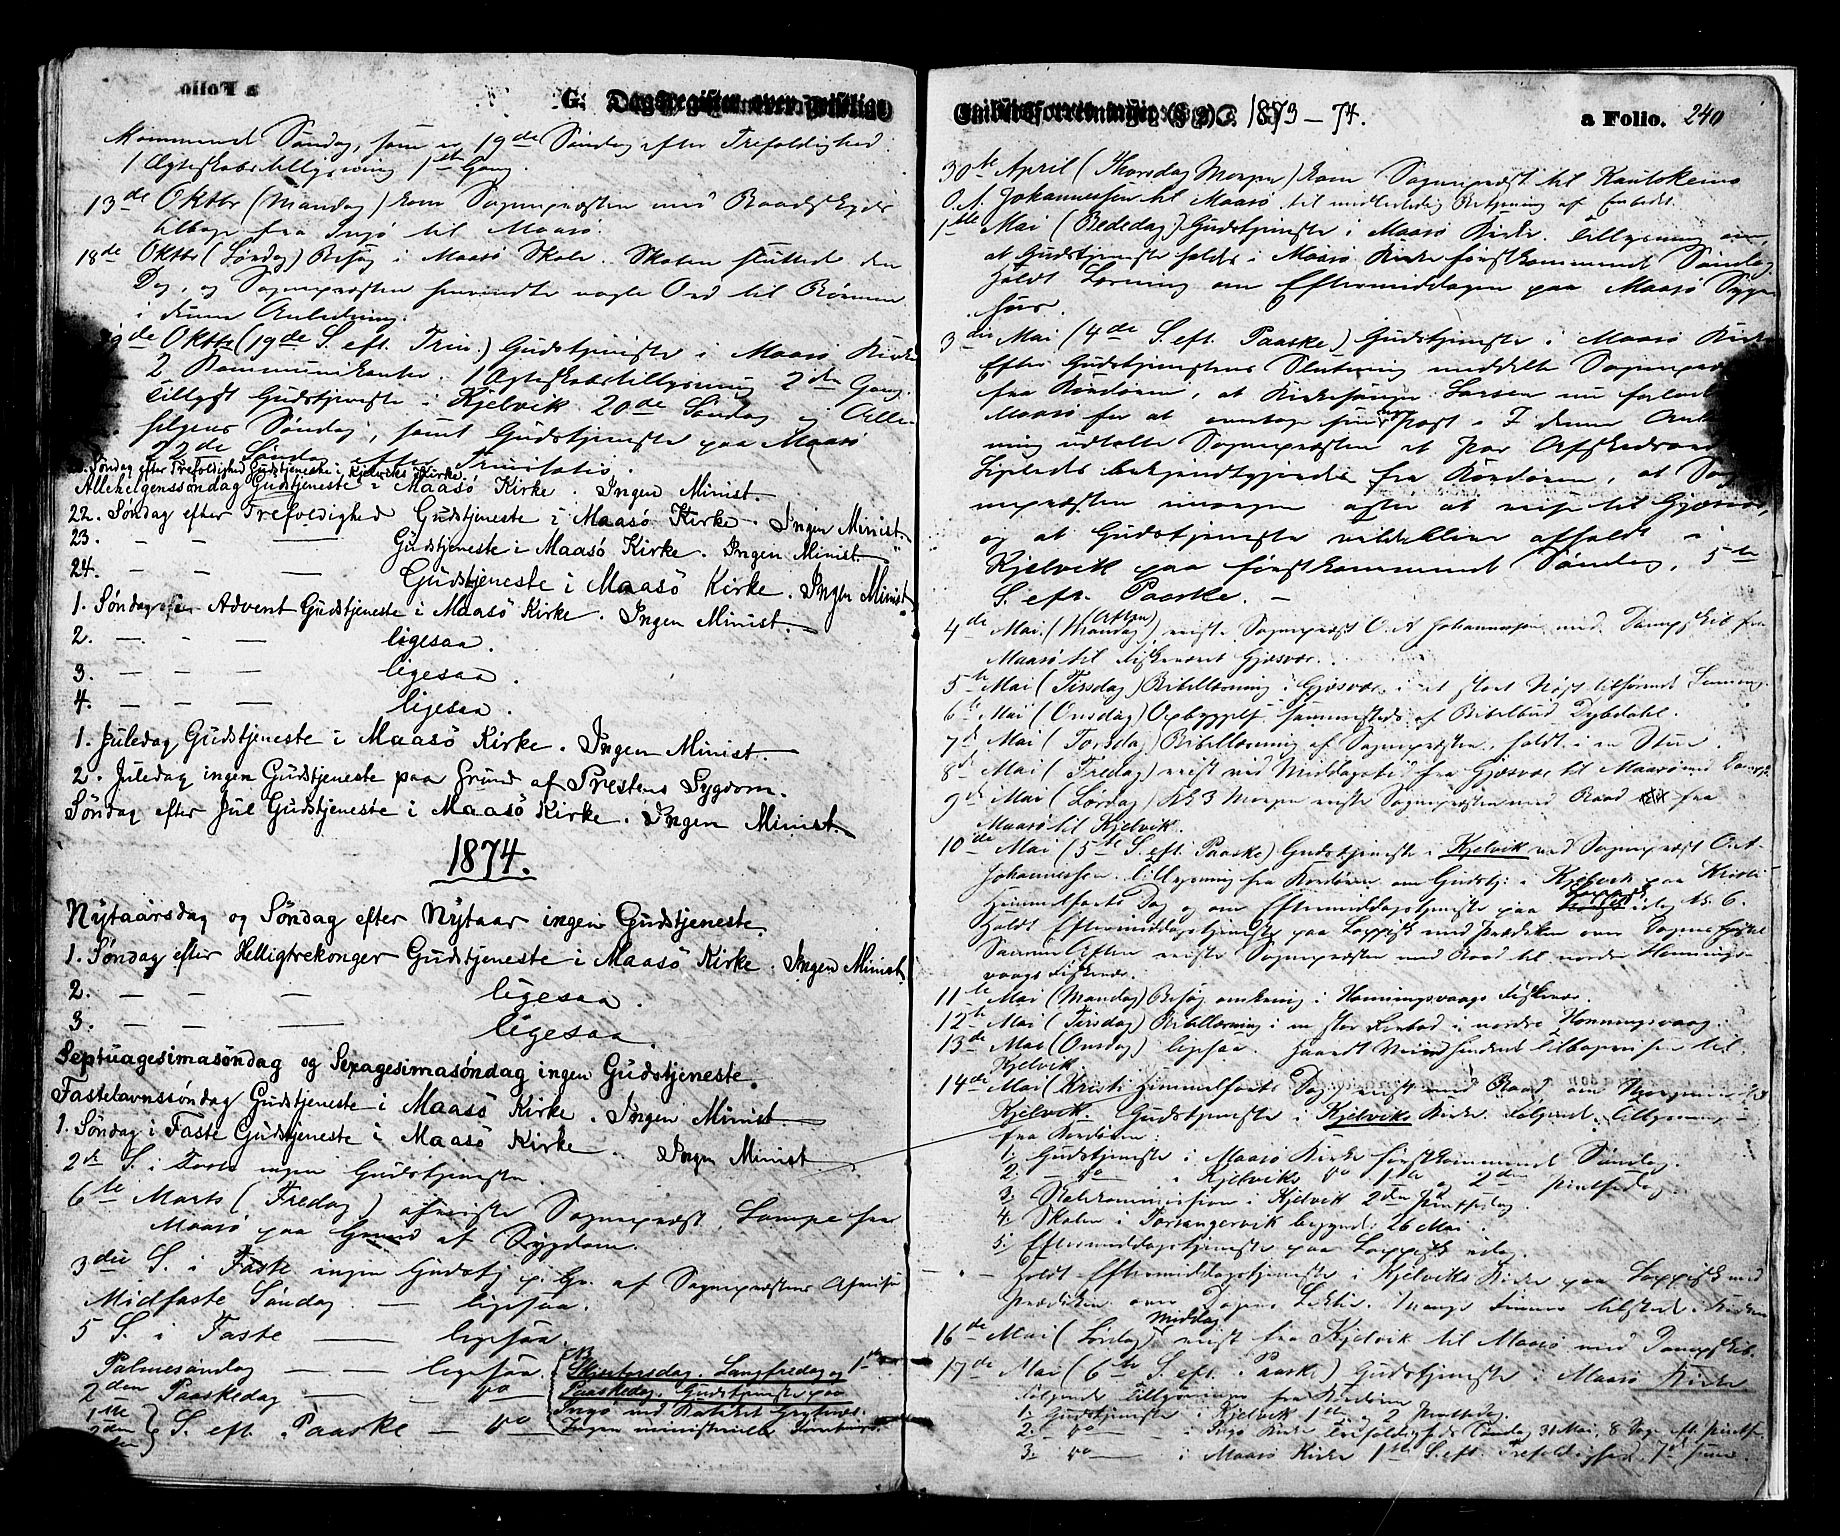 a Folio
G. Dagregister over geistlige
kommende Søndag, som er 19de Søndag efter Trefoldighed.
1 Ægteskabstillysning 1ste Gang.
13de Oktbr (Mandag) kom Sognepræsten med Baadskyds
tilbage fra Ingø til Maasø.
18de Oktbr (Lørdag) Besøg i Maasø Skole. Skolen sluttede den
Dag, og Sognepræsten henvendte nogle Ord til Børnene
i denne Anledning.
19de Oktbr (19de S. eft. Trin.) Gudstjeneste i Maasø Kirke
2 Kommunikanter. 1 Ægteskabstillysning 2den Gang.
Tillyst Gudstjeneste i Kjelvik 20de Søndag og Alle-
helgens Søndag, samt Gudstjeneste paa Maasø
22de Søndag efter Trinitatis.
Søndag efter Trefoldighed Gudstjeneste i Kjelviks Kirke.
Allehelgenssøndag Gudstjeneste i Maasø Kirke. Ingen Minist.
22. Søndag efter Trefoldighed Gudstjeneste i Maasø Kirke. Ingen Minist.
23. — — — Gudstjeneste i Maasø Kirke. Ingen Minist.
24. — — — Gudstjeneste i Maasø Kirke. Ingen Minist.
1. Søndag i Advent Gudstjeneste i Maasø Kirke. Ingen Minist.
2. — — — ligesaa.
3. — — — ligesaa.
4. — — — ligesaa.
1. Juledag Gudstjeneste i Maasø Kirke. Ingen Minist.
2. Juledag ingen Gudstjeneste paa Grund af Prestens Sygdom.
Søndag efter Jul Gudstjeneste i Maasø Kirke. Ingen Minist.
1874.
Nytaarsdag og Søndag efter Nytaar ingen Gudstjeneste.
1. Søndag efter Helligtrekonger Gudstjeneste i Maasø Kirke. Ingen Minist.
2. — — — ligesaa.
3. — — — ligesaa.
Septuagesimasøndag og Sexagesimasøndag ingen Gudstjeneste.
Fastelavnssøndag Gudstjeneste i Maasø Kirke. Ingen Minist.
1. Søndag i Faste Gudstjeneste i Maasø Kirke. Ingen Minist.
2den S. i Faste ingen Gudstjeneste.
6te Marts (Fredag) afreiste Sognepræst Lampe fra
Maasø paa Grund af Sygdom.
3die S. i Faste ingen Gudstj. p. Gr. af Sognepræstens Afreise
Midfaste Søndag — ligesaa.
5 S. i Faste — ligesaa.
Palmesøndag — — ligesaa.
2den Paaskedag — — do
NB Skjærtorsdag, Langfredag og 1ste
Paaskedag Gudstjeneste paa
Ingø ved Kateket
Ingen ministerielle Forretn.
1ste
2den } S. eft. Paaske — do
Embedsforretninger 1873–74.
a Folio. 240
30te April (Thorsdag Morgen) kom Sognepræst til Kautokeino
O. A. Johannessen til Maasø til midlertidig Betjening af Embedet.
1ste Mai (Bededag) Gudstjeneste i Maasø Kirke. Tillysning om,
at Gudstjeneste holdes i Maasø Kirke førstkommende Søndag
Holdt Læsning om Eftermiddagen paa Maasø Syge-
hus.
3die Mai (4de S. eft. Paaske) Gudstjeneste i Maasø Kirke
Efter Gudstjenestens Slutning meddelte Sognepræsten
fra Kordøren, at Kirkesanger Larsen nu forlader
Maasø for at modtage sin nye Post. I denne Anled-
ning udtalte Sognepræsten et Par Afskedsord
Ligeledes bekjendtgjordes fra Kordøren, at Sog-
nepræsten imorgen agter at reise til Gjæsvær,
og at Gudstjeneste vil blive afholdt i
Kjelvik paa førstkommende Søndag, 5te
S. eft. Paaske. —
4de Mai (Mandag Aften) reiste Sognepræst O. A. Johannessen med Dampskib fra
Maasø til Fiskeværet Gjæsvær.
5te Mai (Tirsdag) Bibellæsning i Gjæsvær i et stort Nøst
6te Mai (Onsdag) Opbyggelse sammesteds af Bibelbud Dybdahl.
7de Mai (Torsdag) Bibellæsning af Sognepræsten, holdt i en Stue.
8de Mai (Fredag) reist ved Middagstid fra Gjæsvær til Maasø med Damps.
9de Mai (Lørdag) Kl. 3 Morgen reiste Sognepræsten med Baad fra
Maasø til Kjelvik.
10de Mai (5te S. eft. Paaske) Gudstjeneste i Kjelvik ved Sognepræst O. A.
Johannessen. Tillysning fra Kordøren om Gudstj. i Kjelvik paa Kristi
Himmelfarts Dag og om Eftermiddagstjeneste paa Lappisk idag Kl. 6.
Holdt Eftermiddagstjeneste paa Lappisk med Prædiken over Dagens
Samme Aften reiste Sognepræsten med Baad til nordre Honnings-
vaags Fiskevær.
11te Mai (Mandag) Besøg omkring i Honningsvaags Fiskevær.
12te Mai (Tirsdag) Bibellæsning i en stor i nordre Honningsvaag.
13de Mai (Onsdag) ligesaa. tilbagereisen til
Kjelvik.
14de Mai (Kristi Himmelfarts Dag) reist med Baad om Morgenen til
Kjelvik. Gudstjeneste i Kjelviks Kirke. Følgende Tillysning
fra Kordøren:
1. Gudstjeneste i Maasø Kirke førstkommende Søndag.
2. do i Kjelviks do 1ste og 2den Pintsedag.
3. Skolekommission i Kjelvik 2den Pintsedag.
4. Skolen i begynder 26 Mai.
5. Eftermiddagstjeneste paa Lappisk idag.
— Holdt Eftermiddagstjeneste i Kjelviks Kirke paa Lappisk med
Prædiken over Dagens Lektie. Mange Finner tilstede i Kirken
16de Mai (Lørdag Middag) reist fra Kjelvik til Maasø med Dampskib.
17de Mai (6te S. eft. Paaske) Gudstjeneste i Maasø Kirke
Følgende Tillysninger fra Kordøren
1. Gudstjeneste i Kjelvik 1ste og 2 Pintsedag.
2. do — i Ingø Kirke Trefoldigheds Søndag 31 Mai, 8 Dage eft. Pintse.
3. do — i Maasø Kirke 1ste S. eft. Trefoldighed, 7de Juni.